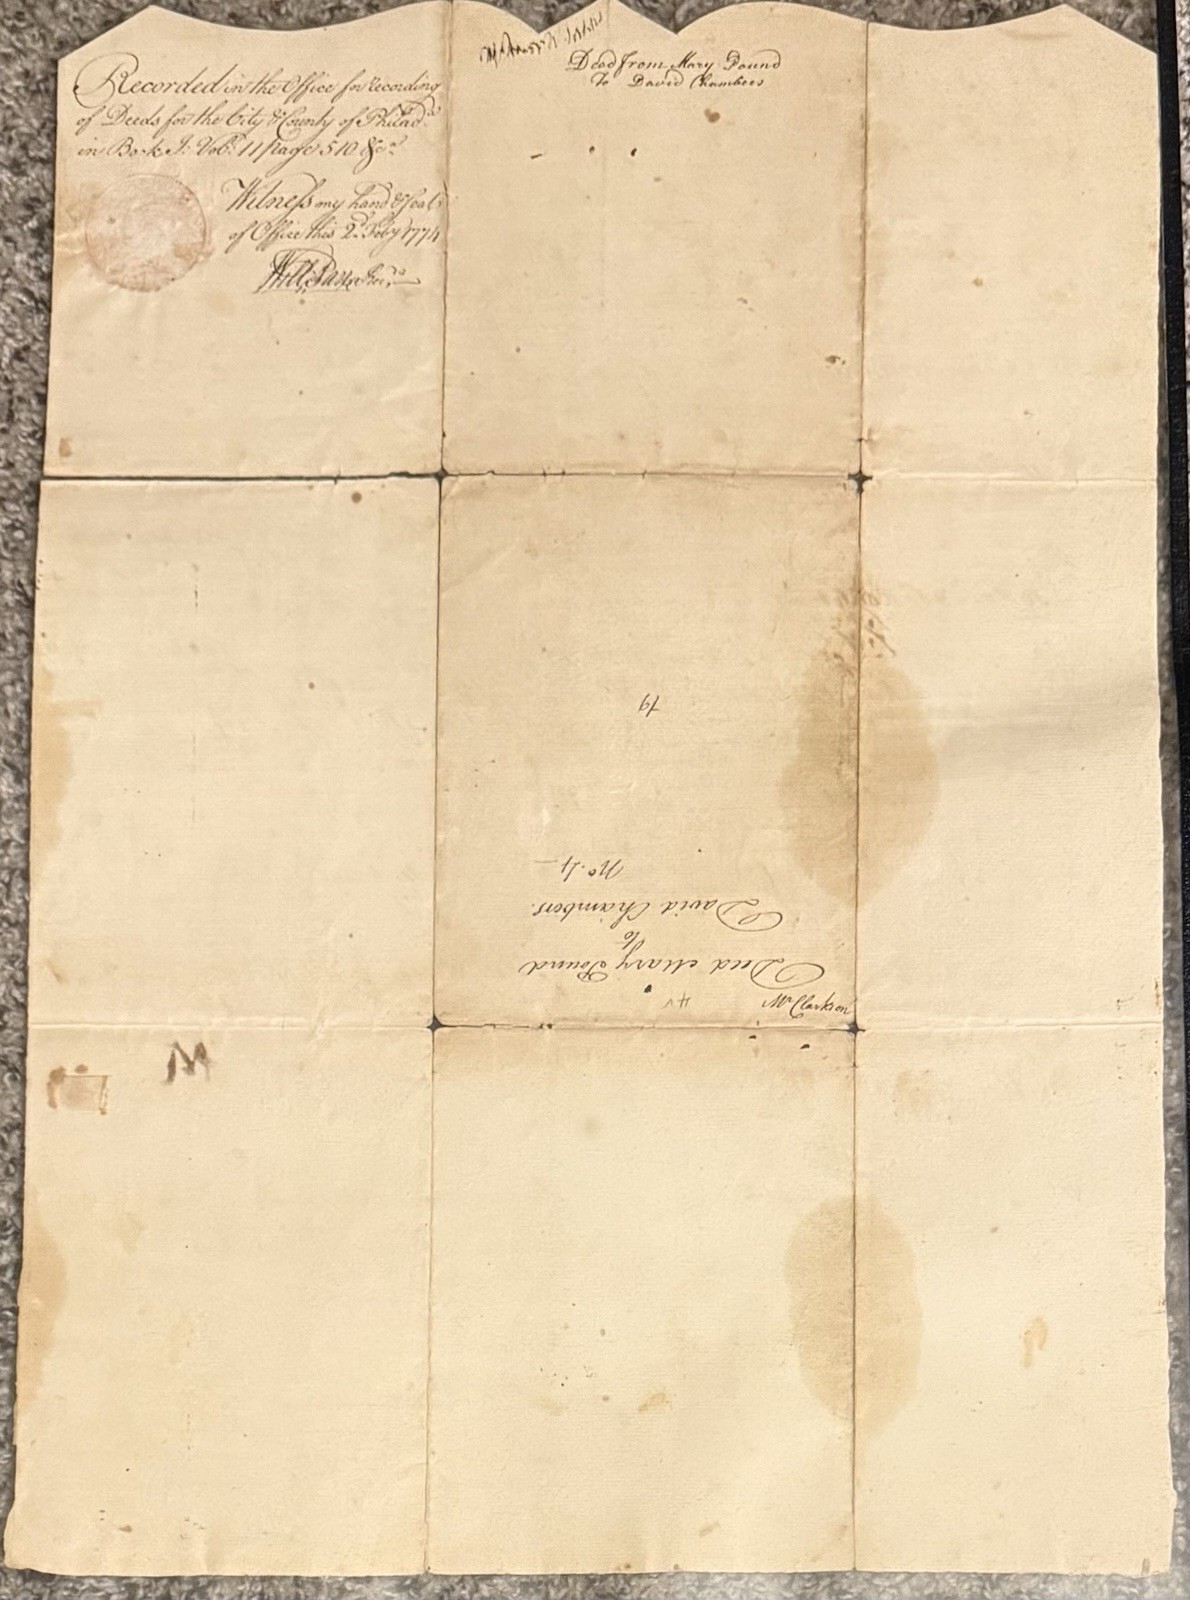 Recorded in the Office for Recording
of Deeds for the City & County of Philadª
in Book I: Vol: 11 page 510 &cª
Witness my hand & Seal
of Office this 2d Feby 1774
Deed from Mary Pound
To David Chambers
Mr Clarkson
Deed Mary Pound
to
David Chambers.
No. 4